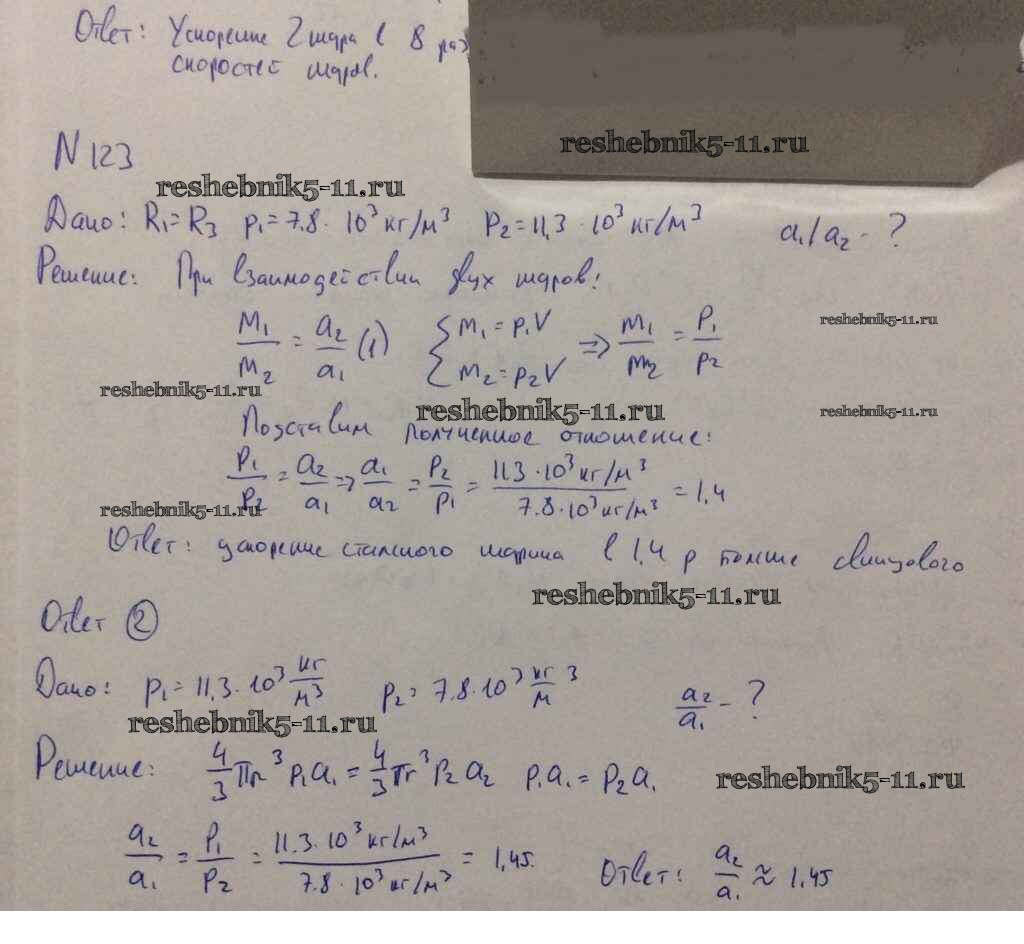 Ответ: Ускорение 2 шара в 8 раз
скоростей шаров.
reshebnik5-11.ru
N 123
reshebnik5-11.ru
Дано: R₁=R₃ ρ₁=7.8·10³ кг/м³ ρ₂=11,3·10³ кг/м³ a₁/a₂ - ?
Решение: При взаимодействии двух шаров:
M₁/M₂ = a₂/a₁ (1) { M₁=ρ₁V M₂=ρ₂V => m₁/m₂ = ρ₁/ρ₂
reshebnik5-11.ru
reshebnik5-11.ru
reshebnik5-11.ru
reshebnik5-11.ru
Подставим полученное отношение:
ρ₁/ρ₂ = a₂/a₁ => a₁/a₂ = ρ₂/ρ₁ = 11.3·10³ кг/м³ / 7.8·10³ кг/м³ = 1,4
reshebnik5-11.ru
Ответ: ускорение стального шарика в 1,4 р больше свинцового
reshebnik5-11.ru
Ответ ②
Дано: ρ₁=11,3·10³ кг/м³ ρ₂=7.8·10³ кг/м³ a₂/a₁ - ?
reshebnik5-11.ru
Решение: 4/3 πr³ρ₁a₁ = 4/3 πr³ρ₂a₂ ρ₁a₁ = ρ₂a₁
reshebnik5-11.ru
a₂/a₁ = ρ₁/ρ₂ = 11.3·10³ кг/м³ / 7.8·10³ кг/м³ = 1,45. Ответ: a₂/a₁ ≈ 1.45